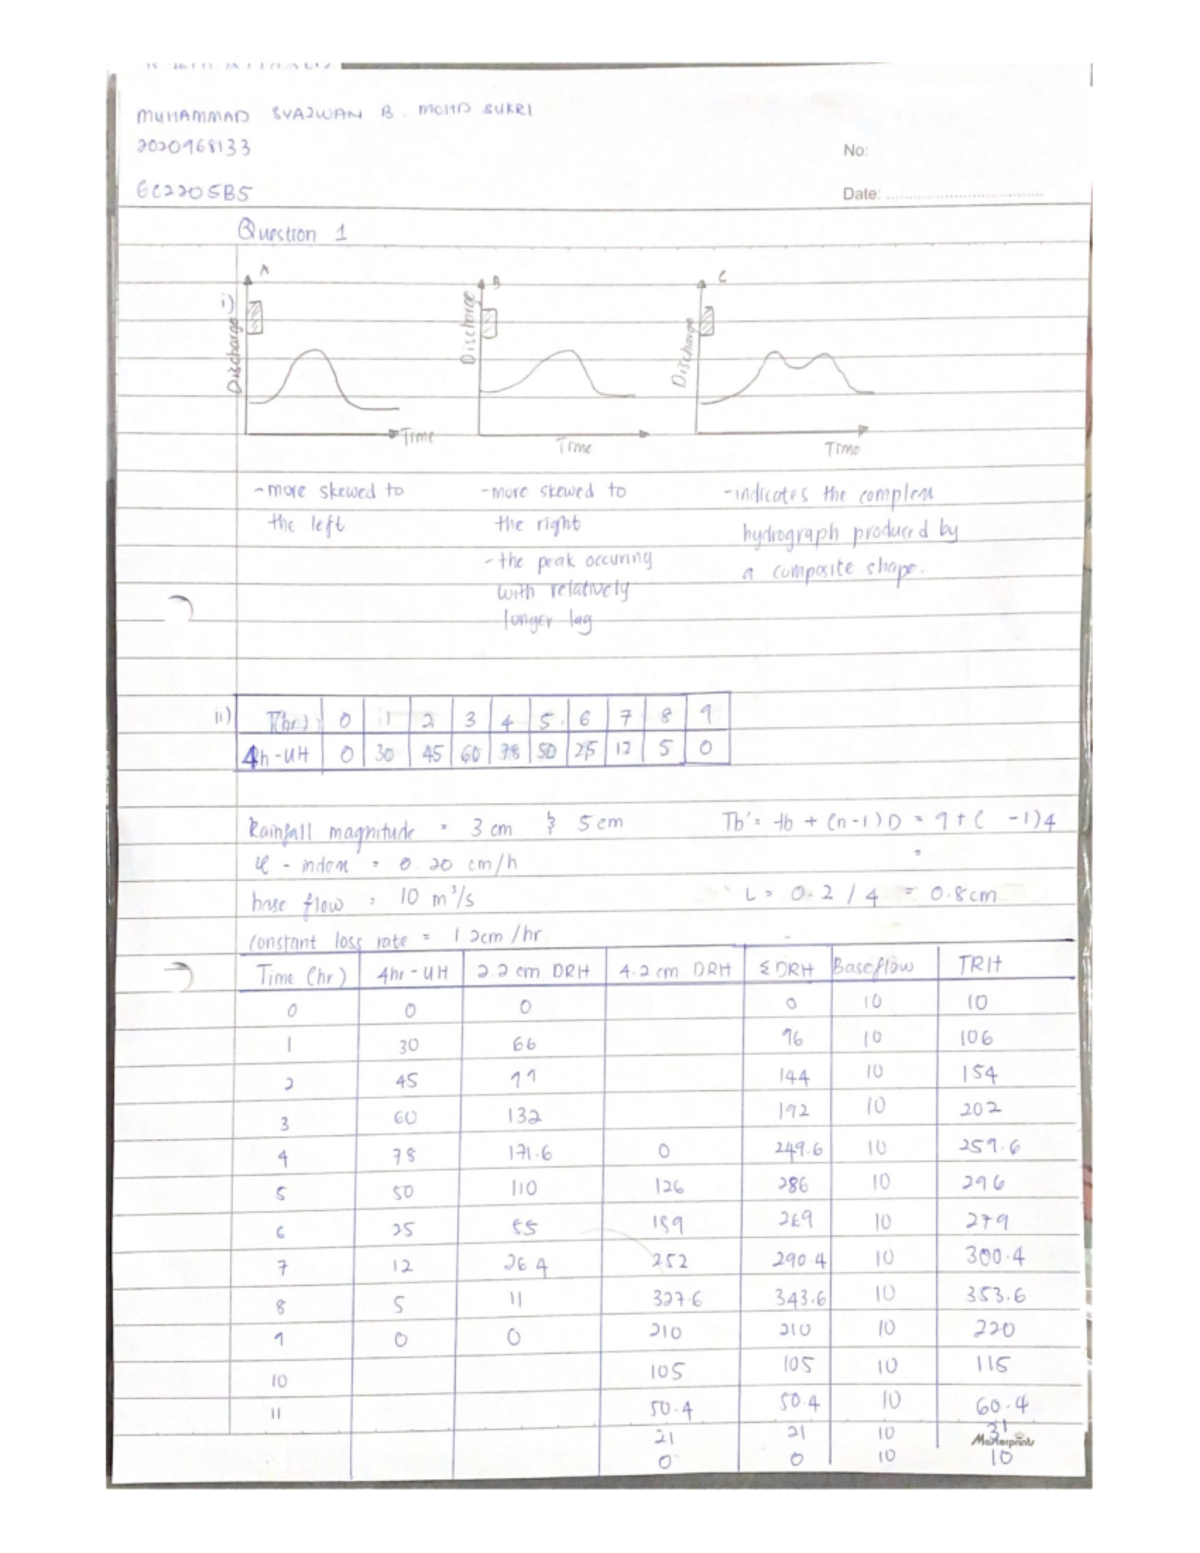 MUHAMMAD SYAZWAN B. MOHD SUKRI
2020968133
No:
EC2205B5
Date:
Question 1
A
B
C
i)
Discharge
Discharge
Discharge
Time
Time
Time
- more skewed to
the left
- more skewed to
the right
- the peak occuring
with relatively
longer lag
- indicates the complex
hydrograph produced by
a composite shape.
ii) T(hr) : 0 1 2 3 4 5 6 7 8 9
4h - UH 0 30 45 60 78 50 25 12 5 0
Rainfall magnitude = 3 cm & 5 cm
Tb' = tb + (n-1) D = 9 + ( -1)4
=
φ - index = 0.20 cm/h
base flow = 10 m³/s
L = 0.2 / 4 = 0.8cm
constant loss rate = 1 2cm/hr
Time (hr) 4hr - UH 2.2 cm DRH 4.2 cm DRH Σ DRH Baseflow TRH
0 0 0 0 10 10
1 30 66 96 10 106
2 45 99 144 10 154
3 60 132 192 10 202
4 78 171.6 0 249.6 10 259.6
5 50 110 126 286 10 296
6 25 55 189 269 10 279
7 12 26.4 252 290.4 10 300.4
8 5 11 327.6 343.6 10 353.6
9 0 0 210 210 10 220
10 105 105 10 115
11 50.4 50.4 10 60.4
21 21 10 31
Masterprints
0 0 10 10